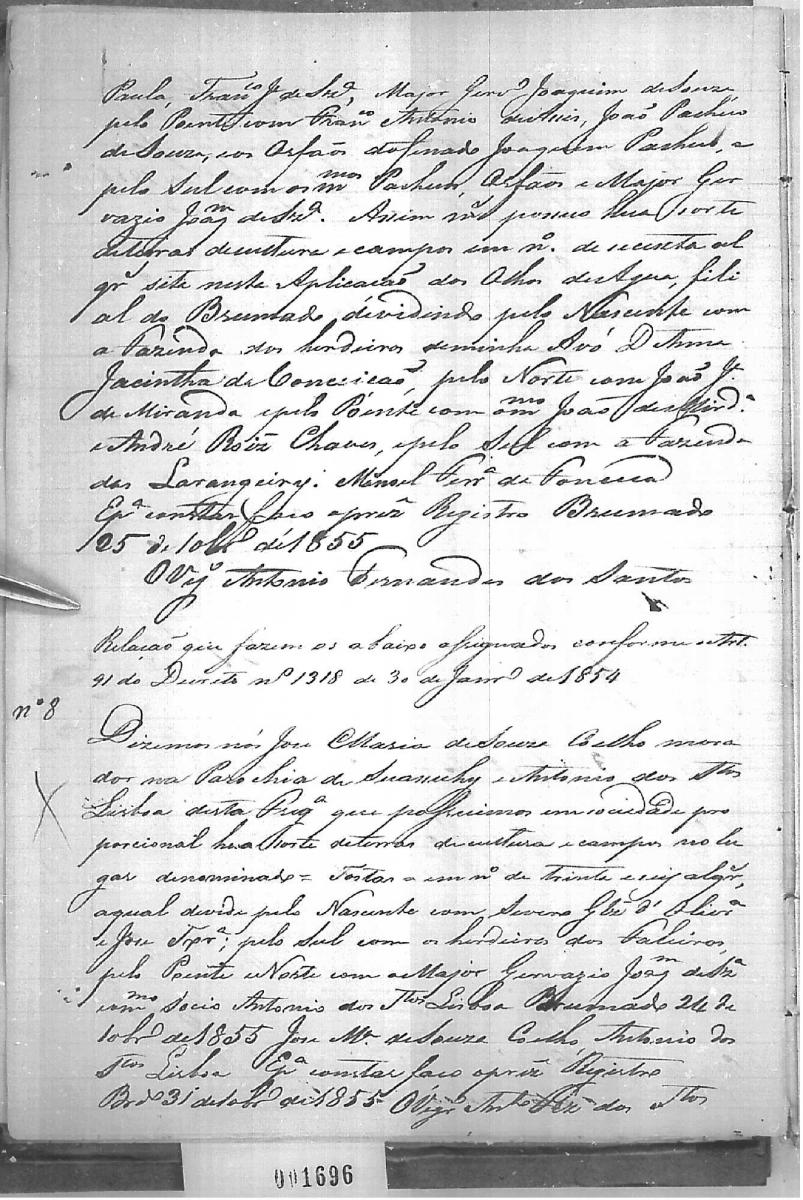 Paula, Franco Je de Sza, Major Gervo Joaquim de Souza
pelo Poente com Franco Antonio de Assis, João Pacheco
de Souza, e os Orfãos do finado Joaquim Pacheco, e
pelo Sul com os mmos Pachecos, Orfãos e Major Ger
vazio Joaqm de Sza. Assim mais possuo hua sorte
de terras de cultura e campos em no. de secenta al
qrs site neste Aplicacão dos Olhos de Agua, fili
al do Brumado, dividindo pelo Nascente com
a Fazenda dos herdeiros de minha Avó D Anna
Jacintha da Conceicão, pelo Norte com João Je.
de Miranda e pelo Poente com o mmo João de Mirda.
e André Roiz Chaves, e pelo Sul com a Fazenda
das Larangeiras. Manoel Ferra da Fonceca
E pa constar faco o prezte Registro Brumado
25 de 10bro de 1855
O Vigo Antonio Fernandes dos Santos
Relação que fazem os abaixo assignados conforme o Art.
91 do Decreto no 1318 de 30 de Janro de 1854
no 8
Dizemos nós Jose Maria de Souza Coelho mora
dor na Parochia de Suassuhy e Antonio dos Stos
Lisboa desta Frega que possuimos em sociedade pro
porcional hua sorte de terras de cultura e campos no lu
gar denominado = = em no de trinta e seis alqrs,
a qual divide pelo Nascente com Severo d'Olivra
e Jose; pelo Sul com os herdeiros dos Faleiros,
pelo Poente e Norte com o Major Gervazio Joaqm de Sza
e o mmo sócio Antonio dos Stos Lisboa Brumado 24 de
10bro de 1855 Jose Ma. de Souza Coelho, Antonio dos
Stos Lisboa E pa constar faco o prezte Registro
Brdo 31 de 10bro de 1855 O Vigro Anto Frz dos Stos
001696